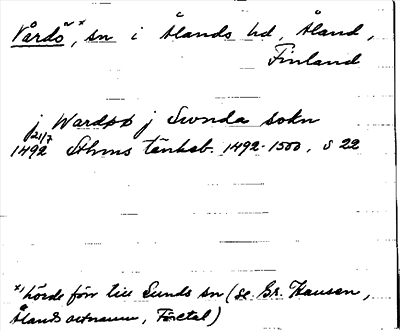 Vårdö*, sn i Ålands hd, Åland,
Finland
j Wardøø j Swnda sokn
21/7
1492 Sthms tänkeb. 1492-1500, s 22
*/ hörde förr till Sunds sn (se Gr. Hausen,
Ålands ortnamn, Företal)